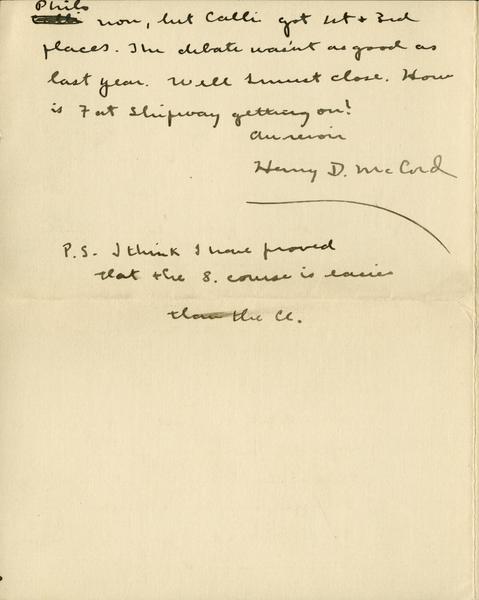 Philo
won, but Calli got 1st & 3rd
places. The debate wasn't as good as
last year. Well I must close. How
is Fat Shipway getting on?
Au revoir
Henry D. McCord
P.S. I think I have proved
that the S. course is easier
than the Cl.